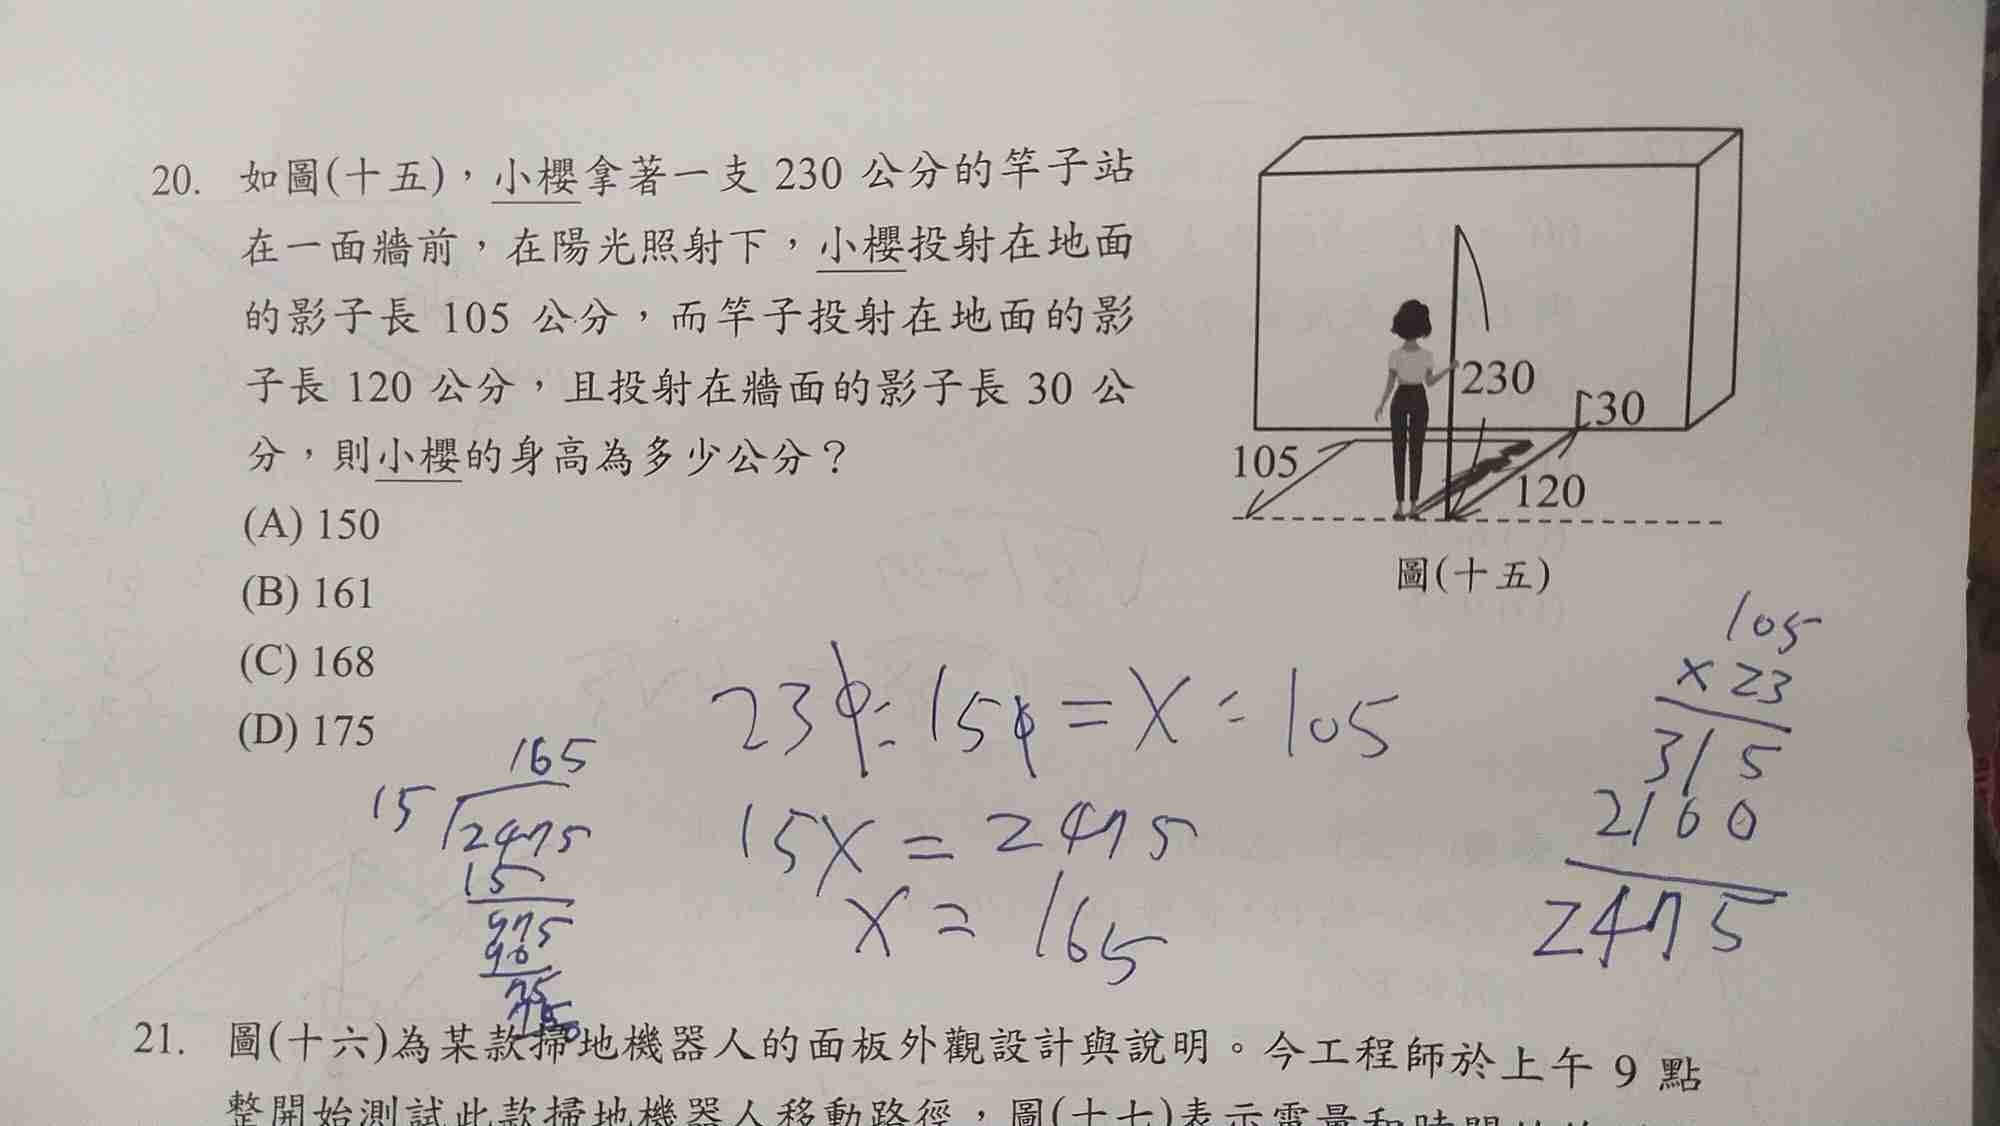 20. 如圖(十五)，小櫻拿著一支 230 公分的竿子站
在一面牆前，在陽光照射下，小櫻投射在地面
的影子長 105 公分，而竿子投射在地面的影
子長 120 公分，且投射在牆面的影子長 30 公
分，則小櫻的身高為多少公分？
(A) 150
(B) 161
(C) 168
(D) 175
230
30
105
120
圖(十五)
230:150=X:105
15X=2475
X=165
105
×23
315
2160
2475
165
15
2475
15
975
90
75
75
0
21. 圖(十六)為某款掃地機器人的面板外觀設計與說明。今工程師於上午 9 點
整開始測試此款掃地機器人移動路徑，圖(十七)表示電量和時間